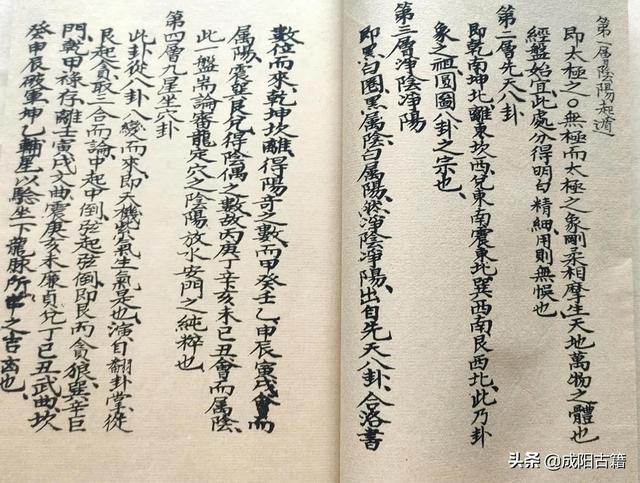 第一層陰陽起道
即太極之○無極而太極之象剛柔相摩生天地萬物之體也
經盤始宜此處分得明白精細用則無悞也
第二層先天八卦
即乾南坤北離東坎西兌東南震東北巽西南艮西北此乃卦
象之祖圓圖八卦之宗也
第三層淨陰淨陽
即黑白圈黑属陰白属陽然淨陰淨陽出自先天八卦合洛書
數位而來乾坤坎離得陽竒之數而甲癸壬乙申辰寅戌會而
属陽震巽艮兌得陰偶之數故丙庚丁辛亥未巳丑會而属陰
此一盤耑論審龍定穴之陰陽放水安門之純粹也
第四層九星坐穴卦
此卦從八卦八變而來即天機紫氣生氣是也演自翻卦掌從
艮起貪取三合而論中起中倒弦起弦倒即艮丙貪狼巽辛巨
門乾甲祿存離壬寅戌文曲震庚亥未廉貞兌丁巳丑武曲坎
癸申辰破軍坤乙輔星以驗坐下龍脉所之吉凶也
头条 @成阳古籍